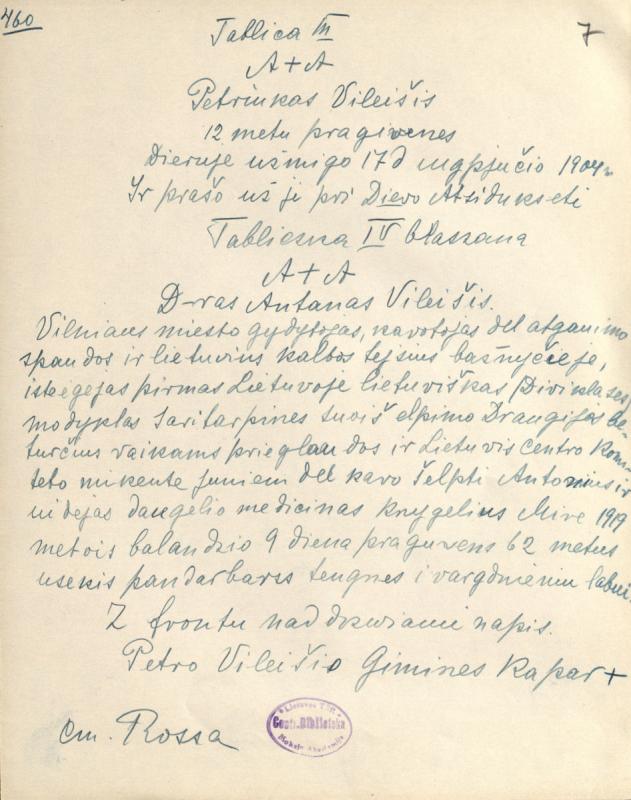 460
7
Tablica III
A+A
Petriukas Vileišis
12 metu pragivenes
Dieruje užmigo 17 d rugpjučio 1904 m
Ir prašo už ji pri Dievo Atsidukseti
Tabliczka IV blaszana
A+A
D-ras Antanas Vileišis.
Vilniaus miesto gydytojas, kavotojas del atganimo
spaudos ir lietuvius kalbos tejsius bažnyčieje,
isteigejas pirmas Lietuvoje lietuviškas (Divi klases)
modyklas Saritarpines Draugijos be-
turčius vaikams prieglaudos ir Lietuvis Centro Komi-
teto nukente juniem del karo šelpti ir
daugelio medicinas knygelius Mire 1919
metois balandzio 9 diena praguvens 62 metus
usekis pandarbarss tengnes i vargdnieniu labui.
Z frontu nad drzwiami napis.
Petro Vileišio Gimines Kapar +
cm. Rossa
Lietuvos TSR
Centr. Biblioteka
Mokslų Akademija